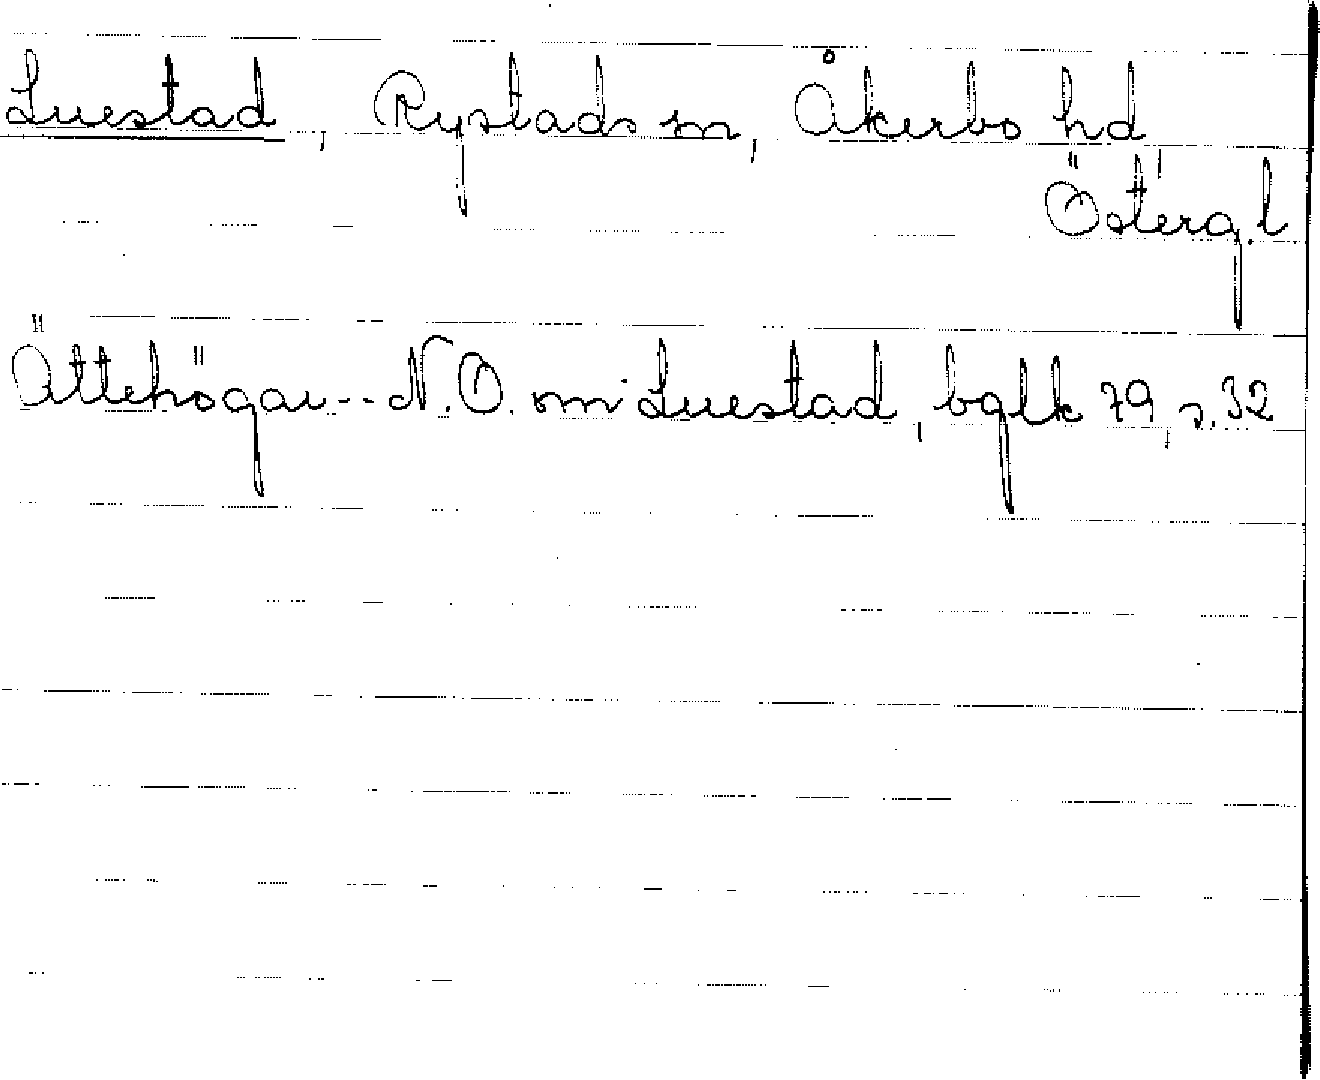 Luestad, Rystads sn, Åkerbo hd,
Österg.l.
Ättehögar -- N.O. om Luestad, bglk 79, s. 32